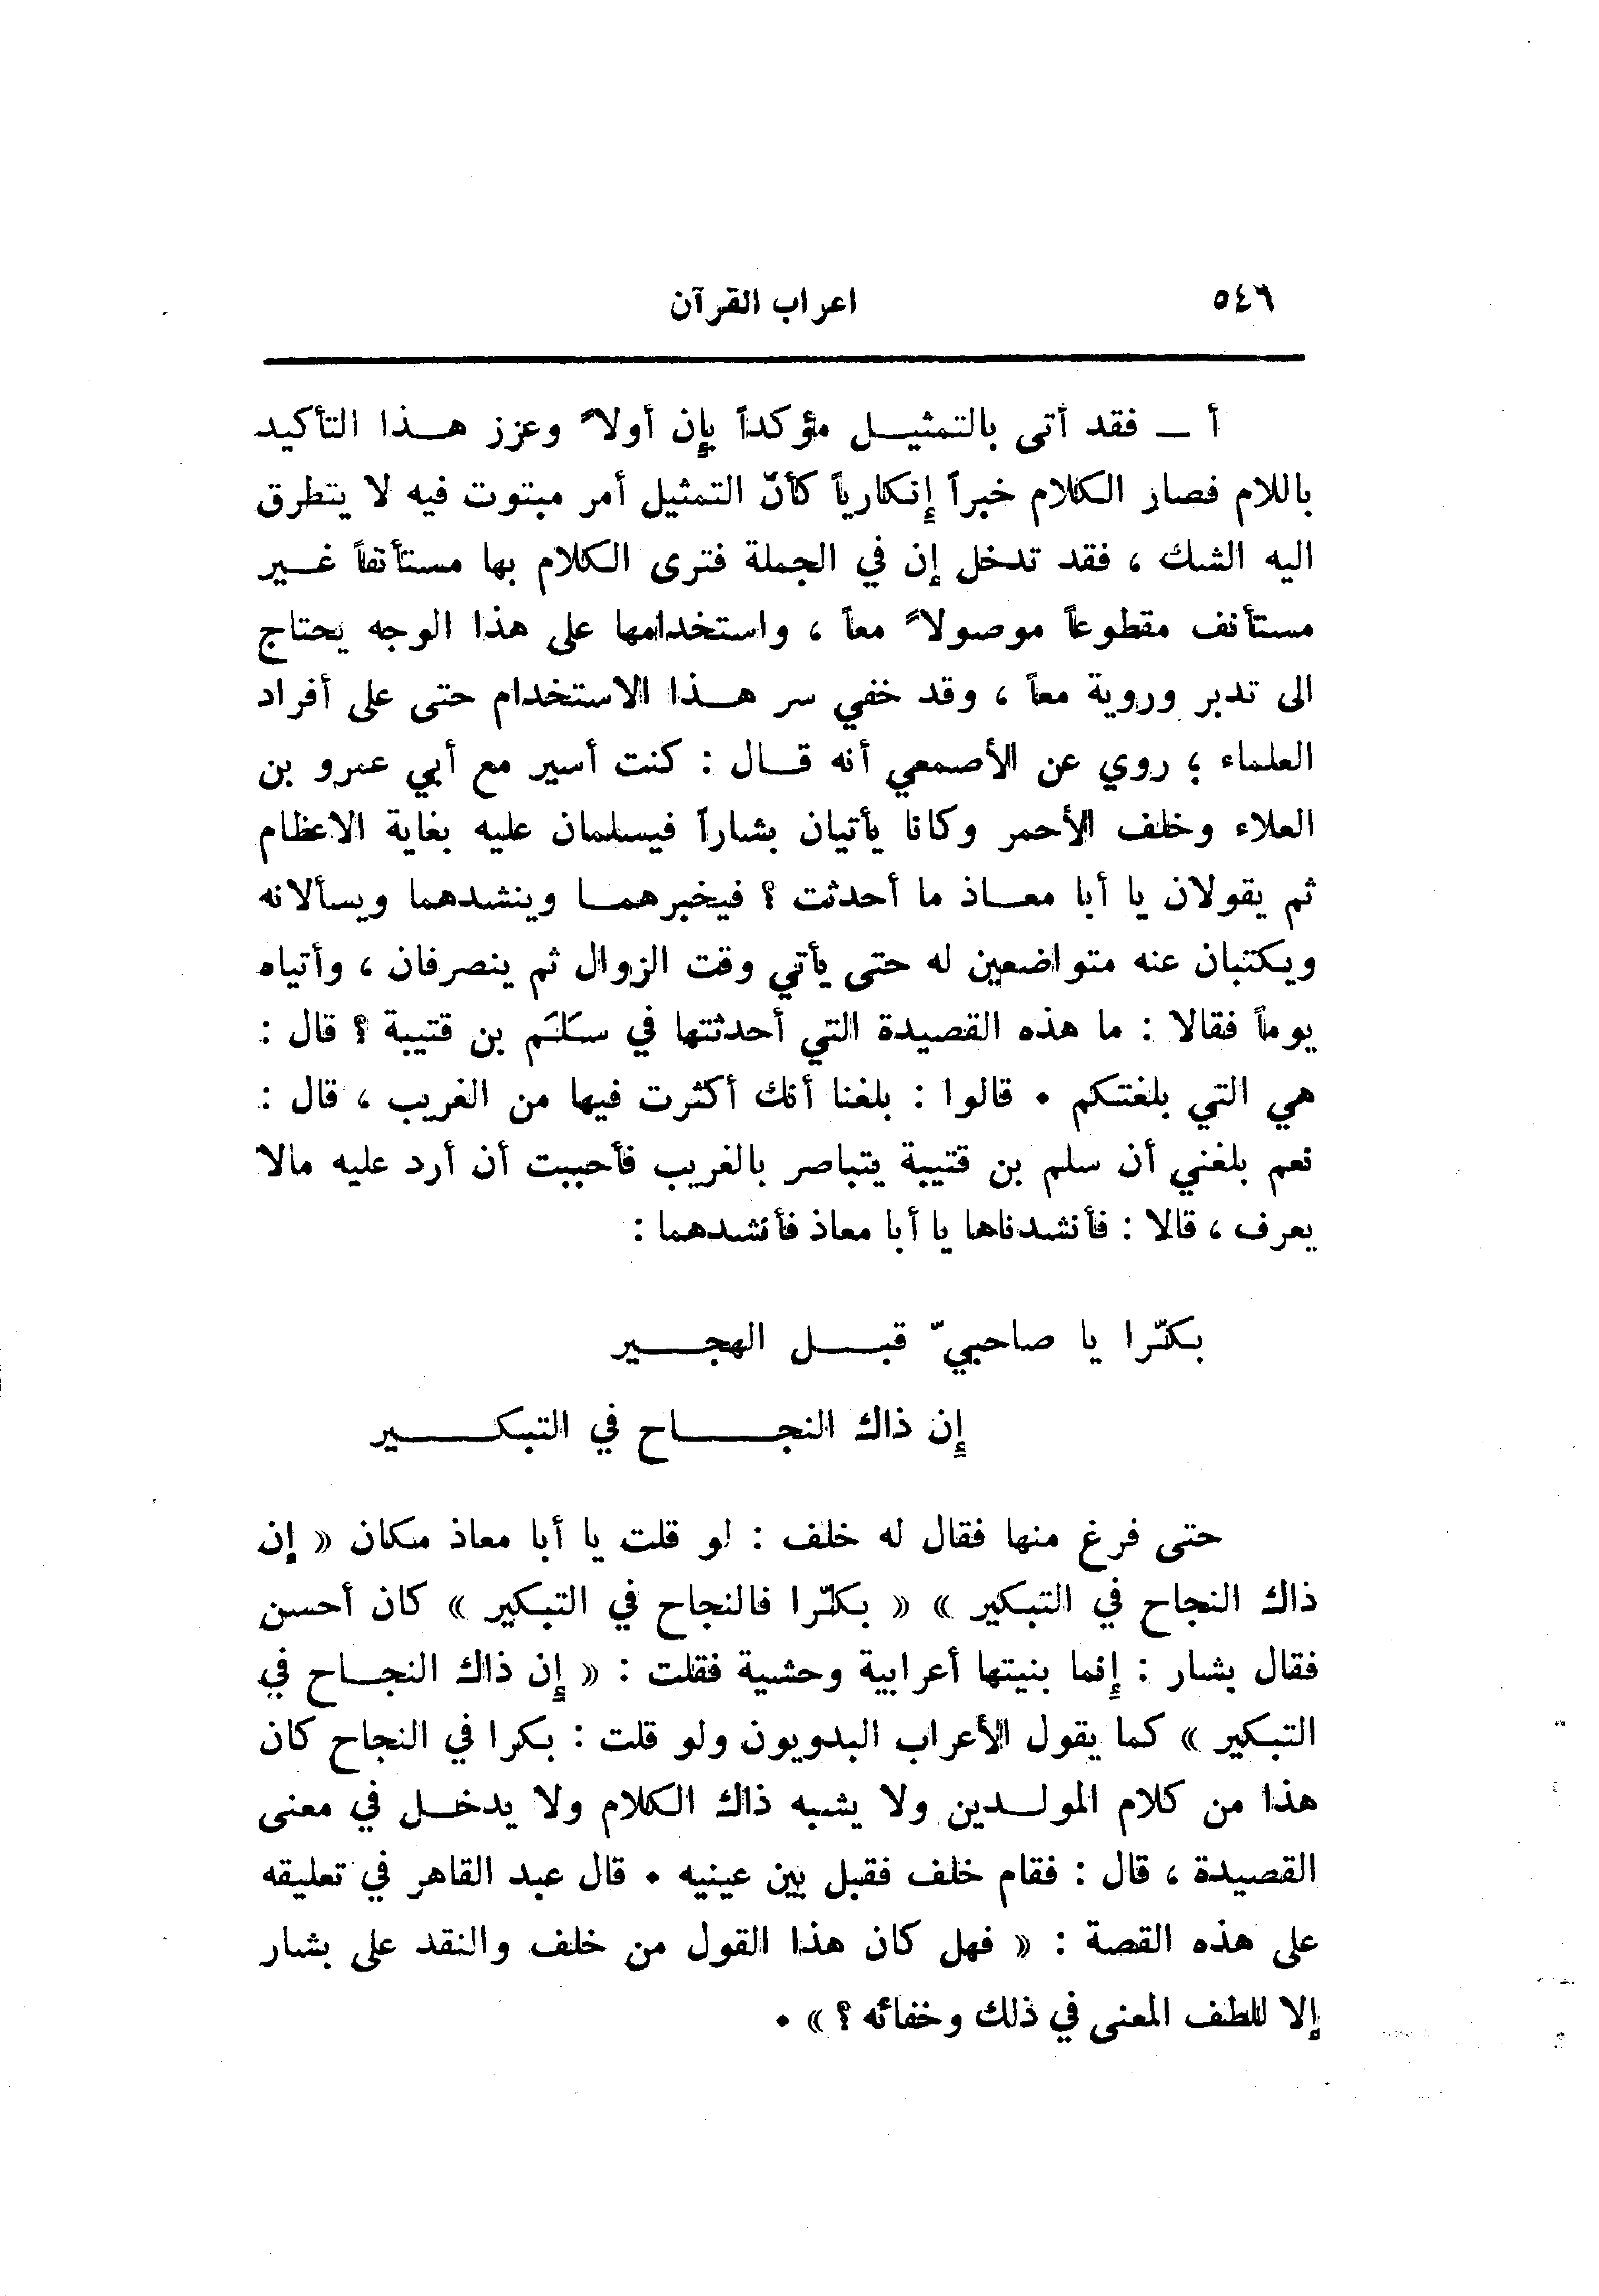 ٥٤٦ اعراب القرآن
أ ــ فقد أتى بالتمثيل مؤكداً بإن أولاً وعزز هذا التأكيد
باللام فصار الكلام خبراً إنكارياً كأنّ التمثيل أمر مبتوت فيه لا يتطرق
اليه الشك ، فقد تدخل إن في الجملة فترى الكلام بها مستأنفاً غير
مستأنف مقطوعاً موصولاً معاً ، واستخدامها على هذا الوجه يحتاج
الى تدبر وروية معاً ، وقد خفي سر هذا الاستخدام حتى على أفراد
العلماء ؛ روي عن الأصمعي أنه قال : كنت أسير مع أبي عمرو بن
العلاء وخلف الأحمر وكانا يأتيان بشاراً فيسلمان عليه بغاية الاعظام
ثم يقولان يا أبا معاذ ما أحدثت ؟ فيخبرهما وينشدهما ويسألانه
ويكتبان عنه متواضعين له حتى يأتي وقت الزوال ثم ينصرفان ، وأتياه
يوماً فقالا : ما هذه القصيدة التي أحدثتها في سَلَم بن قتيبة ؟ قال :
هي التي بلغتكم • قالوا : بلغنا أنك أكثرت فيها من الغريب ، قال :
نعم بلغني أن سلم بن قتيبة يتباصر بالغريب فأحببت أن أرد عليه مالا
يعرف ، قالا : فأنشدناها يا أبا معاذ فأنشدهما :
بكّرا يا صاحبيّ قبل الهجير
إن ذاك النجاح في التبكير
حتى فرغ منها فقال له خلف : لو قلت يا أبا معاذ مكان « إن
ذاك النجاح في التبكير » « بكّرا فالنجاح في التبكير » كان أحسن
فقال بشار : إنما بنيتها أعرابية وحشية فقلت : « إن ذاك النجاح في
التبكير » كما يقول الأعراب البدويون ولو قلت : بكرا في النجاح كان
هذا من كلام المولدين ولا يشبه ذاك الكلام ولا يدخل في معنى
القصيدة ، قال : فقام خلف فقبل بين عينيه • قال عبد القاهر في تعليقه
على هذه القصة : « فهل كان هذا القول من خلف والنقد على بشار
إلا للطف المعنى في ذلك وخفائه ؟ » •